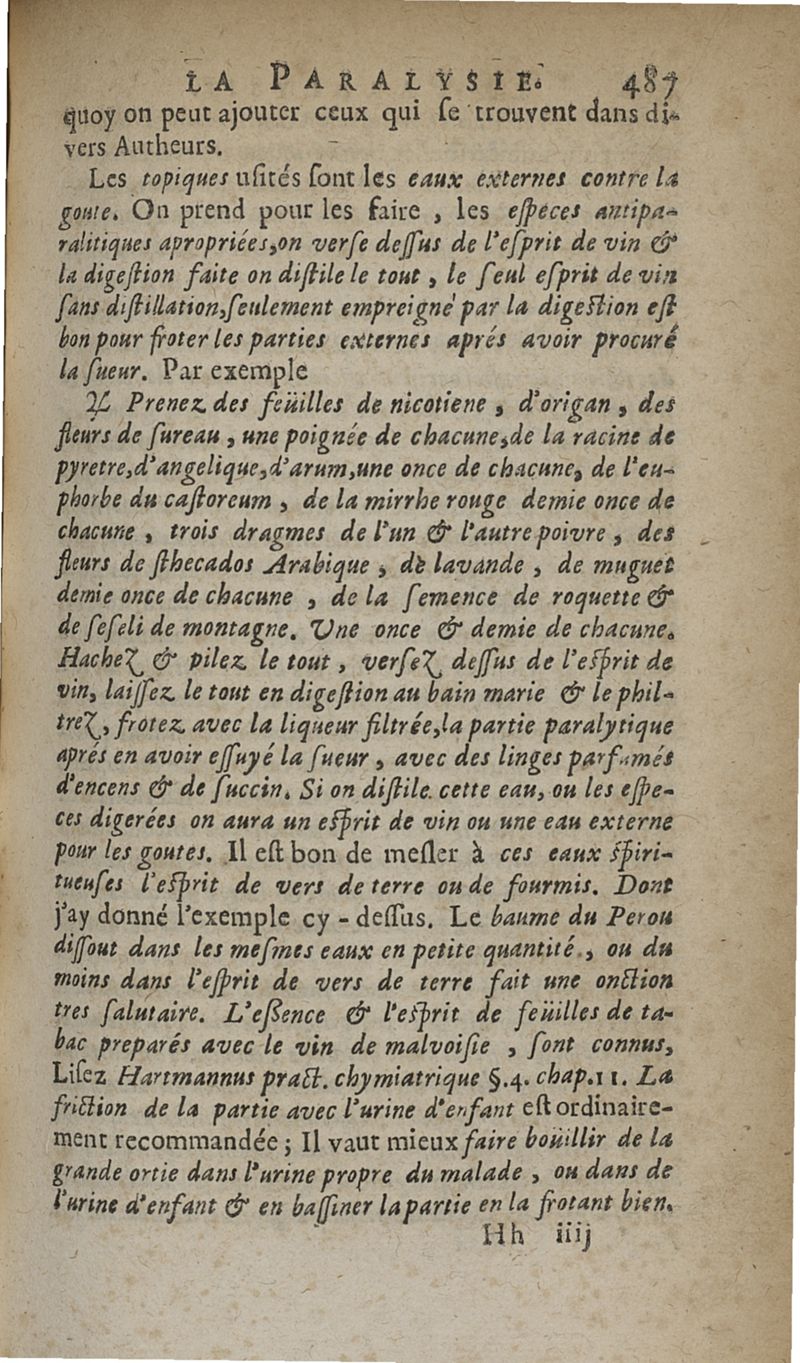 LA PARALYSIE. 487
quoy on peut ajouter ceux qui ſe trouvent dans di-
vers Autheurs.
Les topiques uſités ſont les eaux externes contre la
goute. On prend pour les faire , les eſpeces antipa-
ralitiques apropriées,on verſe deſſus de l'eſprit de vin &
la digeſtion faite on diſtile le tout , le ſeul eſprit de vin
ſans diſtillation,ſeulement empreigné par la digeſtion eſt
bon pour froter les parties externes aprés avoir procuré
la ſueur. Par exemple
♃ Prenez des feüilles de nicotiene , d'origan , des
fleurs de ſureau , une poignée de chacune,de la racine de
pyretre,d'angelique,d'arum,une once de chacune, de l'eu-
phorbe du caſtoreum , de la mirrhe rouge demie once de
chacune , trois dragmes de l'un & l'autre poivre , des
fleurs de ſthecados Arabique , de lavande , de muguet
demie once de chacune , de la ſemence de roquette &
de ſeſeli de montagne. Une once & demie de chacune.
Hachez & pilez le tout , verſez deſſus de l'eſprit de
vin, laiſſez le tout en digeſtion au bain marie & le phil-
trez, frotez avec la liqueur filtrée,la partie paralytique
aprés en avoir eſſuyé la ſueur , avec des linges parfumés
d'encens & de ſuccin. Si on diſtile cette eau, ou les eſpe-
ces digerées on aura un eſprit de vin ou une eau externe
pour les goutes. Il eſt bon de meſler à ces eaux ſpiri-
tueuſes l'eſprit de vers de terre ou de fourmis. Dont
j'ay donné l'exemple cy - deſſus. Le baume du Perou
diſſout dans les meſmes eaux en petite quantité , ou du
moins dans l'eſprit de vers de terre fait une onction
tres ſalutaire. L'eſſence & l'eſprit de feüilles de ta-
bac preparés avec le vin de malvoiſie , ſont connus,
Liſez Hartmannus pract. chymiatrique §.4. chap.11. La
friction de la partie avec l'urine d'enfant eſt ordinaire-
ment recommandée ; Il vaut mieux faire boüillir de la
grande ortie dans l'urine propre du malade , ou dans de
l'urine d'enfant & en baſſiner la partie en la frotant bien.
Hh iiij